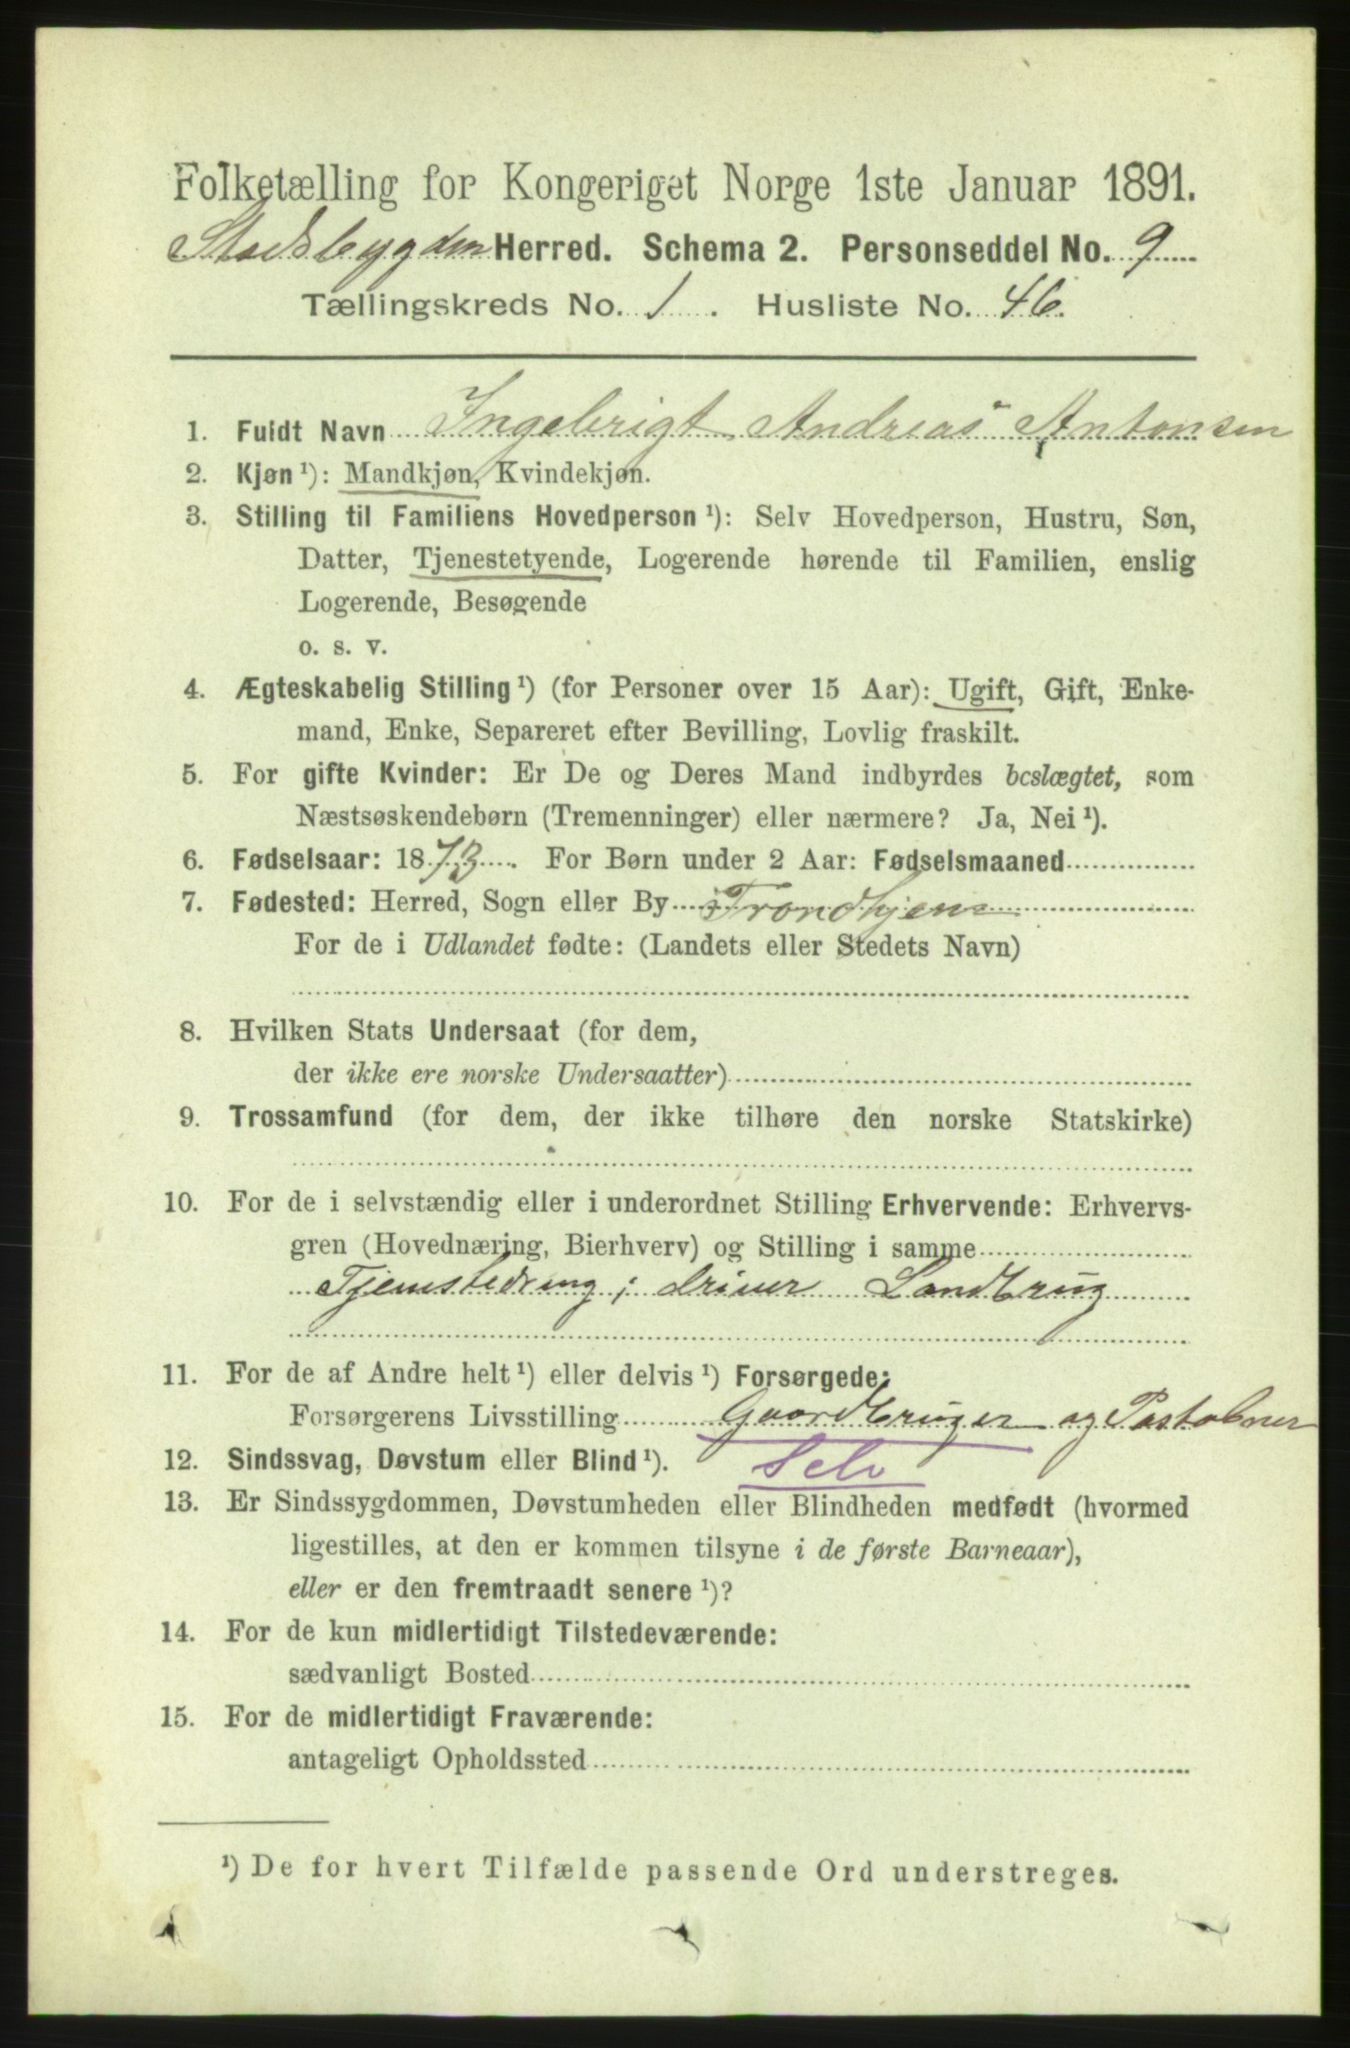 Folketælling for Kongeriget Norge 1ste Januar 1891.
Stadsbygden Herred. Schema 2. Personseddel No. 9
Tællingskreds No. 1. Husliste No. 46.
1. Fuldt Navn Ingebrigt Andreas Antonsen
2. Kjøn ¹): Mandkjøn, Kvindekjøn.
3. Stilling til Familiens Hovedperson ¹): Selv Hovedperson, Hustru, Søn,
Datter, Tjenestetyende, Logerende hørende til Familien, enslig
Logerende, Besøgende
o. s. v.
4. Ægteskabelig Stilling ¹) (for Personer over 15 Aar): Ugift, Gift, Enke-
mand, Enke, Separeret efter Bevilling, Lovlig fraskilt.
5. For gifte Kvinder: Er De og Deres Mand indbyrdes beslægtet, som
Næstsøskendebørn (Tremenninger) eller nærmere? Ja, Nei ¹).
6. Fødselsaar: 1873. For Børn under 2 Aar: Fødselsmaaned
7. Fødested: Herred, Sogn eller By Trondhjem
For de i Udlandet fødte: (Landets eller Stedets Navn)
8. Hvilken Stats Undersaat (for dem,
der ikke ere norske Undersaatter)
9. Trossamfund (for dem, der ikke tilhøre den norske Statskirke)
10. For de i selvstændig eller i underordnet Stilling Erhvervende: Erhvervs-
gren (Hovednæring, Bierhverv) og Stilling i samme
Tjenstedreng; driver Landbrug
11. For de af Andre helt ¹) eller delvis ¹) Forsørgede:
Forsørgerens Livsstilling Gaardbruger og Postabner
12. Sindssvag, Døvstum eller Blind ¹). Selv
13. Er Sindssygdommen, Døvstumheden eller Blindheden medfødt (hvormed
ligestilles, at den er kommen tilsyne i de første Barneaar),
eller er den fremtraadt senere ¹)?
14. For de kun midlertidigt Tilstedeværende:
sædvanligt Bosted
15. For de midlertidigt Fraværende:
antageligt Opholdssted
¹) De for hvert Tilfælde passende Ord understreges.